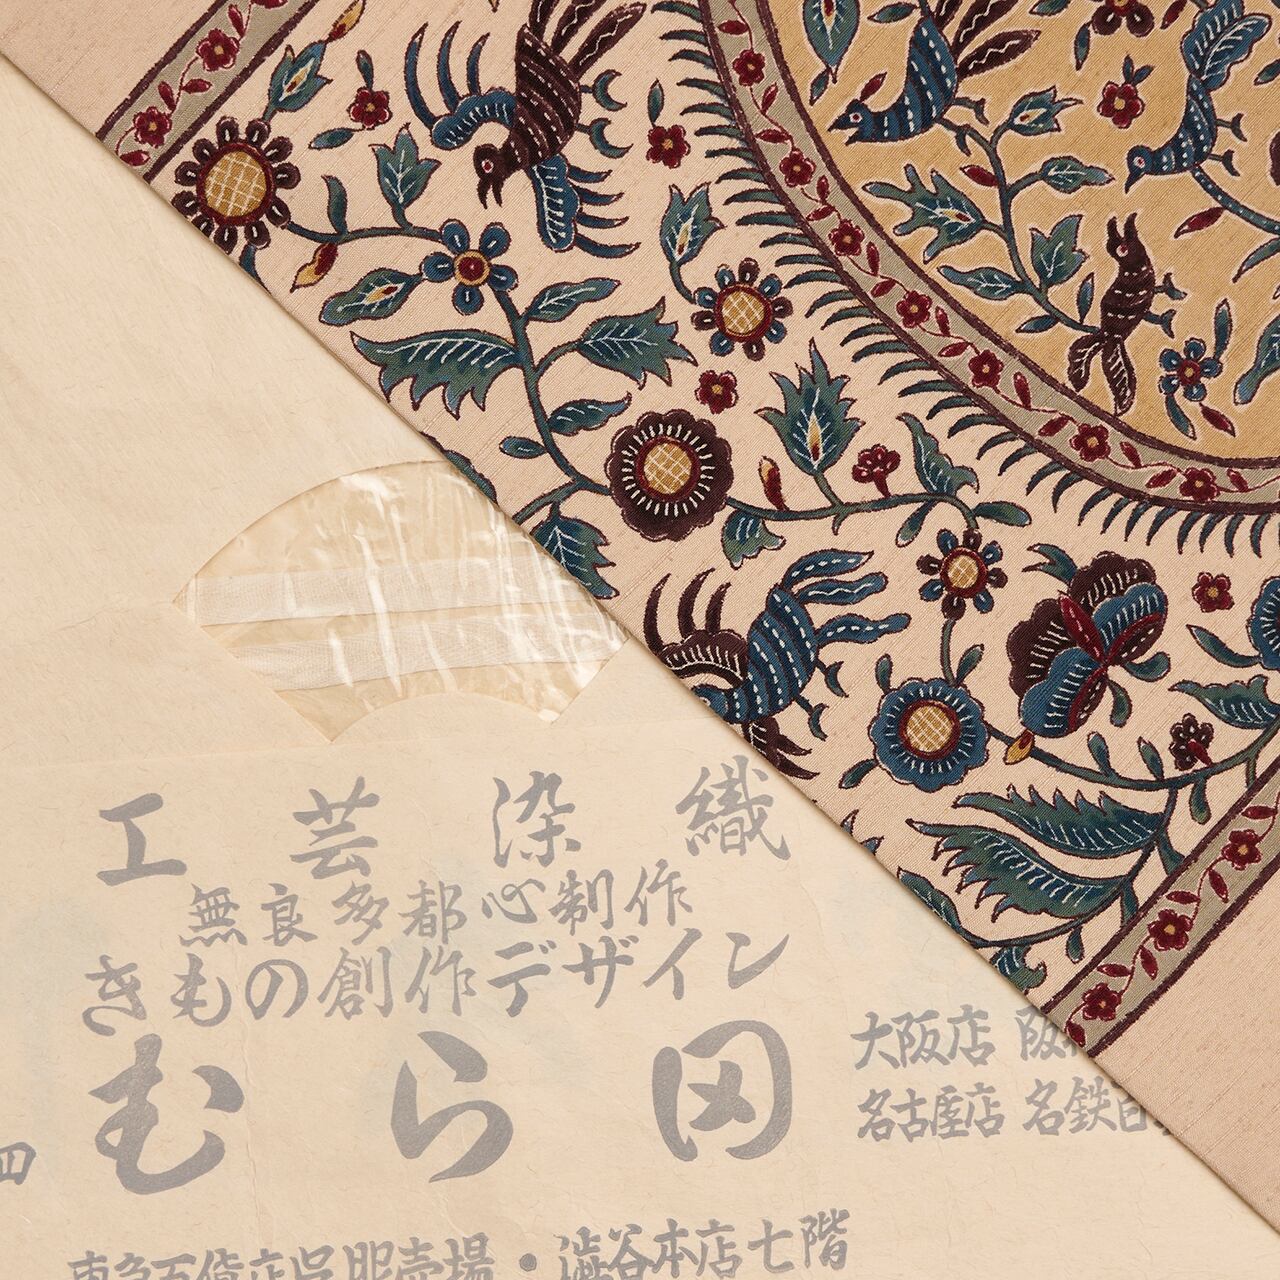 工芸染織
無良多都心制作
きものの創作デザイン
むら田
大阪店 阪
名古屋店 名鉄百
四
東急百貨店呉服売場・渋谷本店七階